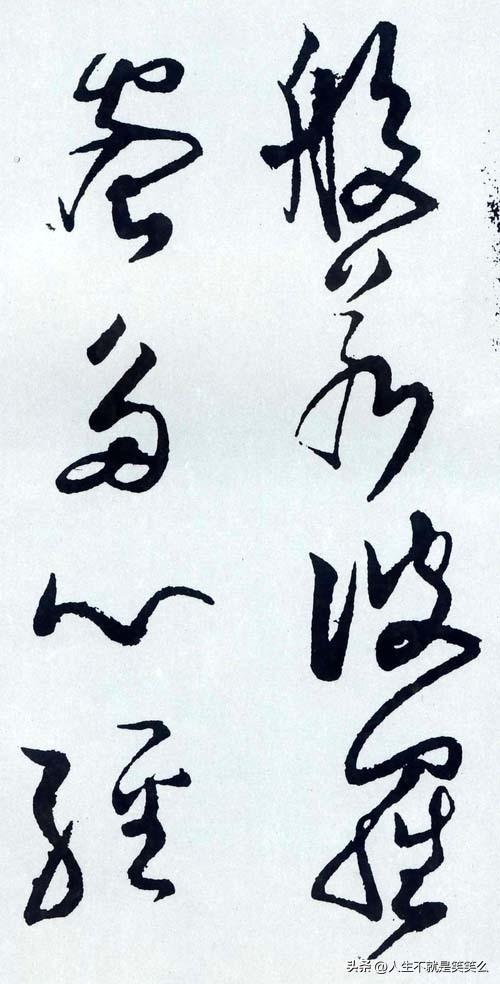 般若波羅
蜜多心經
头条 @人生不就是笑笑么